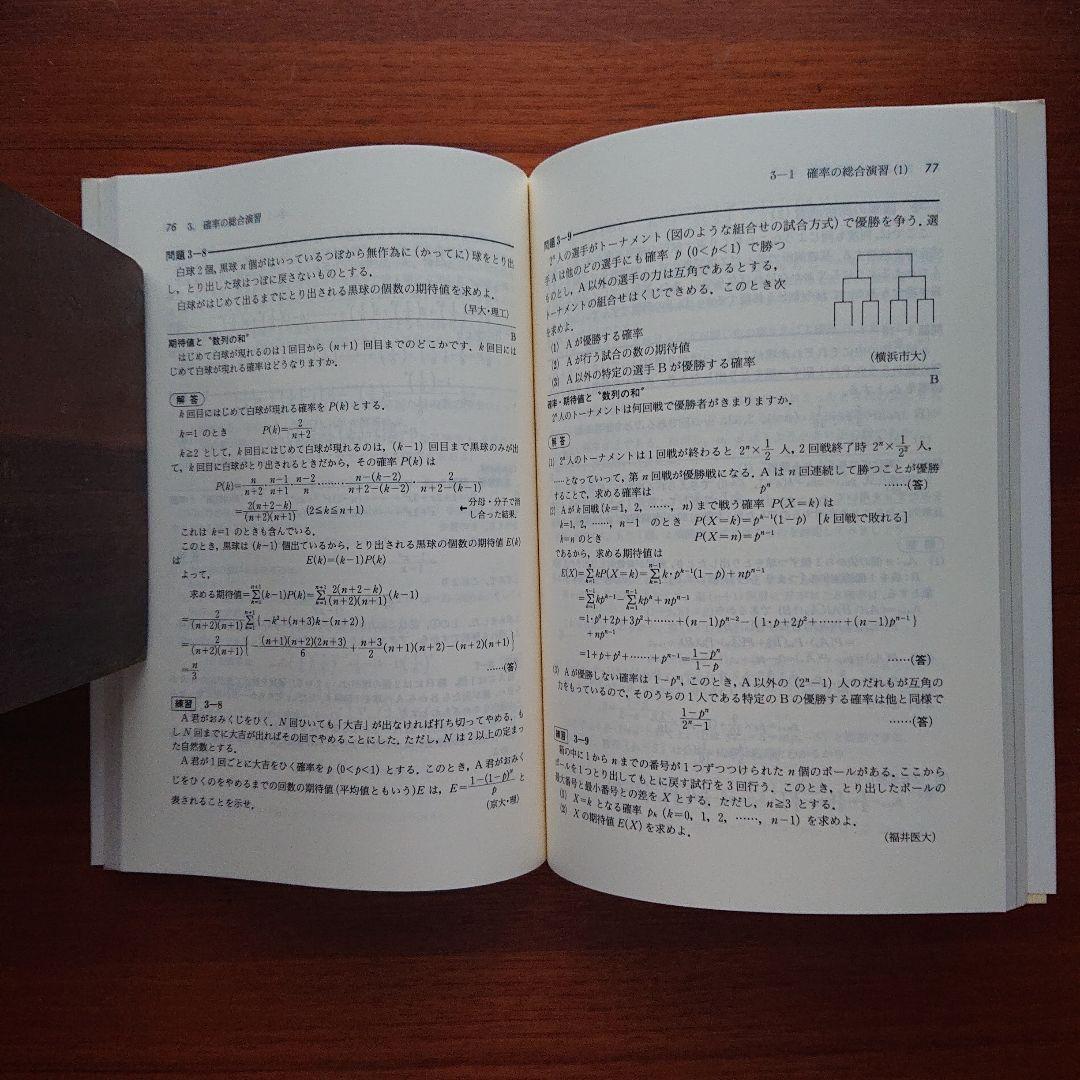 76 3. 確率の総合演習
問題3—8
白球2個，黒球 n 個がはいっているつぼから無作為に（かってに）球をとり出
し，とり出した球はつぼに戻さないものとする．
白球がはじめて出るまでにとり出される黒球の個数の期待値を求めよ．
（早大・理工）
B
期待値と〝数列の和〟
はじめて白球が現れるのは1回目から (n+1) 回目までのどこかです．k 回目には
じめて白球が現れる確率はどうなりますか．
解答
k 回目にはじめて白球が現れる確率を P(k) とする．
k=1 のとき P(k)=2/(n+2)
k≧2 として，k 回目にはじめて白球が現れるのは，(k−1) 回目まで黒球のみが出
て，k 回目に白球がとり出されるときだから，その確率 P(k) は
P(k)=n/(n+2)・(n−1)/(n+1)・(n−2)/n・……・(n−(k−2))/(n+2−(k−2))・2/(n+2−(k−1))
=2(n+2−k)/((n+2)(n+1)) (2≦k≦n+1) ←分母・分子で消
し合った結果．
これは k=1 のときも含んでいる．
このとき，黒球は (k−1) 個出ているから，とり出される黒球の個数の期待値 E(k)
は E(k)=(k−1)P(k)
よって，
求める期待値=Σ_{k=1}^{n+1}(k−1)P(k)=Σ_{k=1}^{n+1} 2(n+2−k)/((n+2)(n+1)) (k−1)
=2/((n+2)(n+1)) Σ_{k=1}^{n+1}{−k²+(n+3)k−(n+2)}
=2/((n+2)(n+1)) {−(n+1)(n+2)(2n+3)/6+(n+3)/2 (n+1)(n+2)−(n+2)(n+1)}
=n/3 ……（答）
練習 3—8
A君がおみくじをひく．N 回ひいても「大吉」が出なければ打ち切ってやめる．も
し N 回までに大吉が出ればその回でやめることにした．ただし，N は2以上の定まっ
た自然数とする．
A君が1回ごとに大吉をひく確率を p (0<p<1) とする．このとき，A君がおみく
じをひくのをやめるまでの回数の期待値（平均値ともいう）E は，E=(1−(1−p)^N)/p と
表されることを示せ．
（京大・理）
3—1 確率の総合演習 (1) 77
問題3—9
2ⁿ人の選手がトーナメント（図のような組合せの試合方式）で優勝を争う．選
手Aは他のどの選手にも確率 p (0<p<1) で勝つ
ものとし，A以外の選手の力は互角であるとする．
トーナメントの組合せはくじできめる．このとき次
を求めよ．
(1) Aが優勝する確率
(2) Aが行う試合の数の期待値
(3) A以外の特定の選手Bが優勝する確率
（横浜市大）
B
確率・期待値と〝数列の和〟
2ⁿ人のトーナメントは何回戦で優勝者がきまりますか．
解答
(1) 2ⁿ人のトーナメントは1回戦が終わると 2ⁿ×1/2 人，2回戦終了時 2ⁿ×1/2² 人，
……となっていって，第 n 回戦が優勝戦になる．Aは n 回連続して勝つことが優勝
することで，求める確率は pⁿ ……（答）
(2) Aが k 回戦 (k=1, 2, ……, n) まで戦う確率 P(X=k) は
k=1, 2, ……, n−1 のとき P(X=k)=p^{k−1}(1−p) [k 回戦で敗れる]
k=n のとき P(X=n)=p^{n−1}
であるから，求める期待値は
E(X)=Σ_{k=1}^{n} kP(X=k)=Σ_{k=1}^{n−1} k・p^{k−1}(1−p)+np^{n−1}
=Σ_{k=1}^{n−1} kp^{k−1}−Σ_{k=1}^{n−1} kp^k+np^{n−1}
=1・p⁰+2p+3p²+……+(n−1)p^{n−2}−{1・p+2p²+……+(n−1)p^{n−1}}
+np^{n−1}
=1+p+p²+……+p^{n−1}=(1−pⁿ)/(1−p) ……（答）
(3) Aが優勝しない確率は 1−pⁿ，このとき，A以外の (2ⁿ−1) 人のだれもが互角の
力をもっているので，そのうちの1人である特定のBの優勝する確率は他と同様で
(1−pⁿ)/(2ⁿ−1) ……（答）
練習 3—9
箱の中に1から n までの番号が1つずつつけられた n 個のボールがある．ここから
ボールを1つとり出してもとに戻す試行を3回行う．このとき，とり出したボールの
最大番号と最小番号との差を X とする．ただし，n≧3 とする．
(1) X=k となる確率 p_k (k=0, 1, 2, ……, n−1) を求めよ．
(2) X の期待値 E(X) を求めよ．
（福井医大）